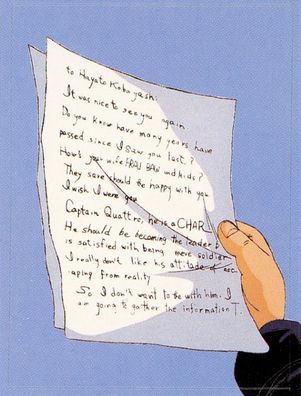 to Hayato Kobayashi:
It was nice to see you again
Do you know have many years have
passed since I saw you last?
How's your wife FRAU BAW and kids?
They sare should be happy with you
I wish I were you
Captain Quattro, he is a CHAR
He should be becoming the leader
is satisfied with being mere soldier
I really don't like his attitude of esc
aping from reality
So I don't want to be with him. I
am going to gather the information T.